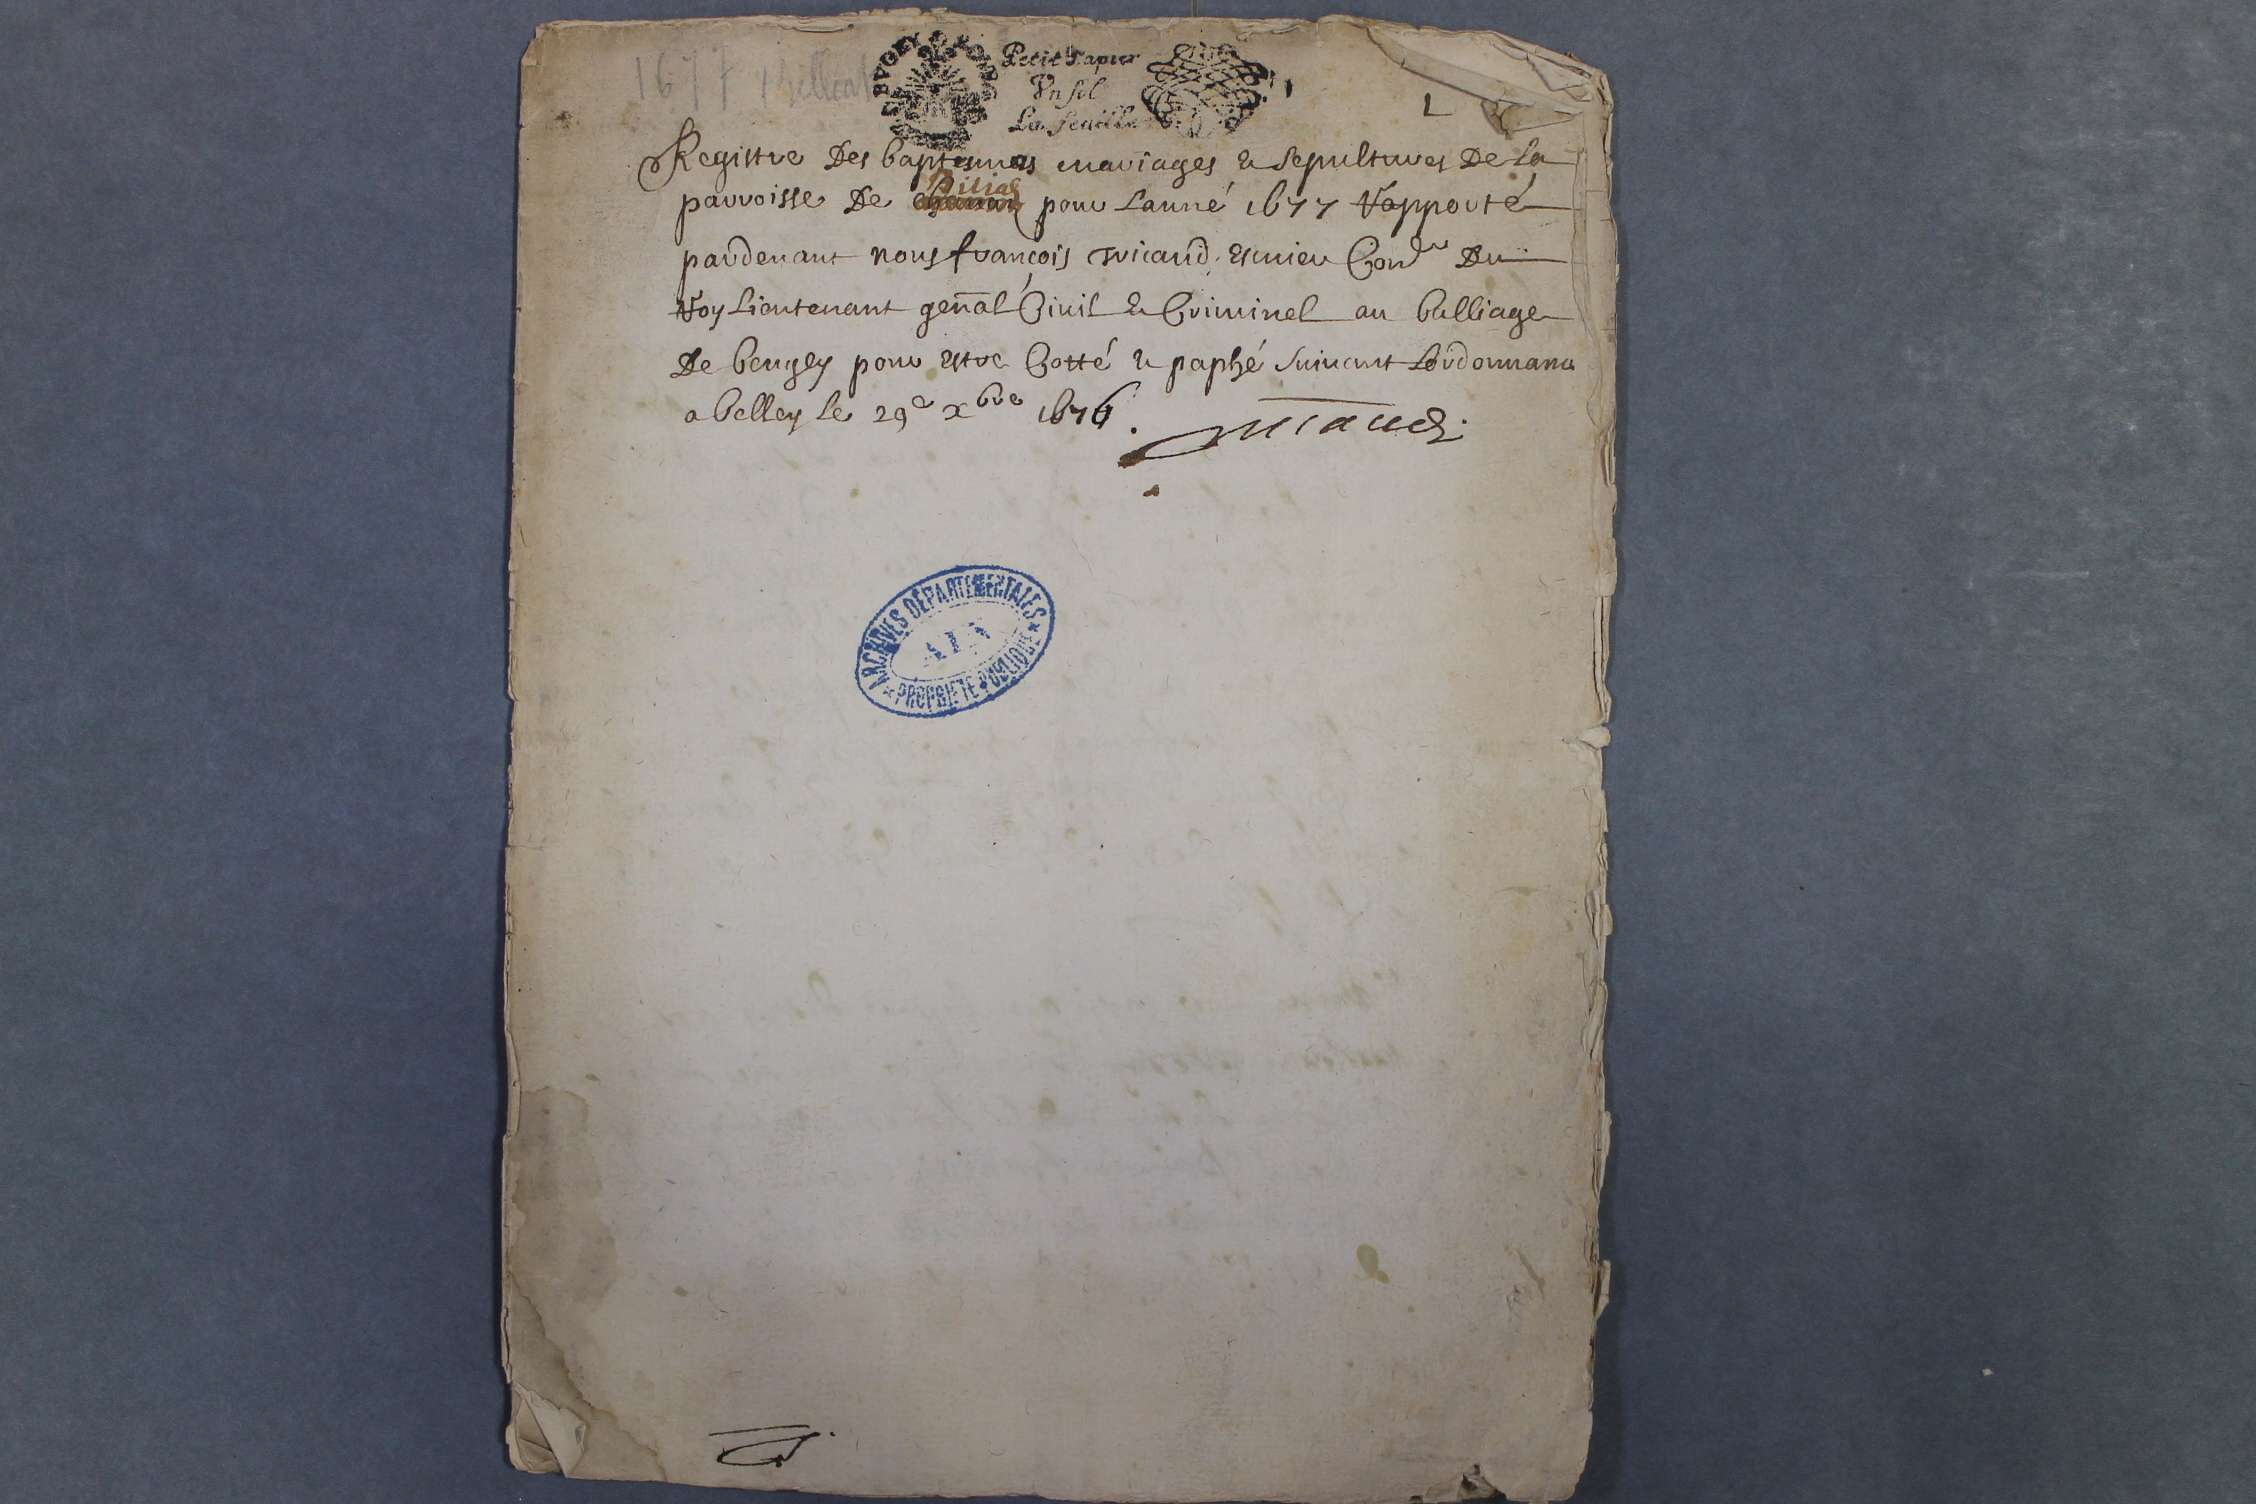 1677
Petit Papier
Un sol
La feuille
1
Registre Des baptesmes mariages & sepultures De La
parroisse De pour Lanné 1677 Rapporté
pardevant nous françois escuier Con.er Du
Roy Lieutenant gen͞al Civil & Criminel au balliage
De beugey pour estre Cotté & paphé suivant Lordonnance
a belley le 29e xbre 1676.
ARCHIVES DÉPARTEMENTALES
AIN
PROPRIÉTÉ PUBLIQUE